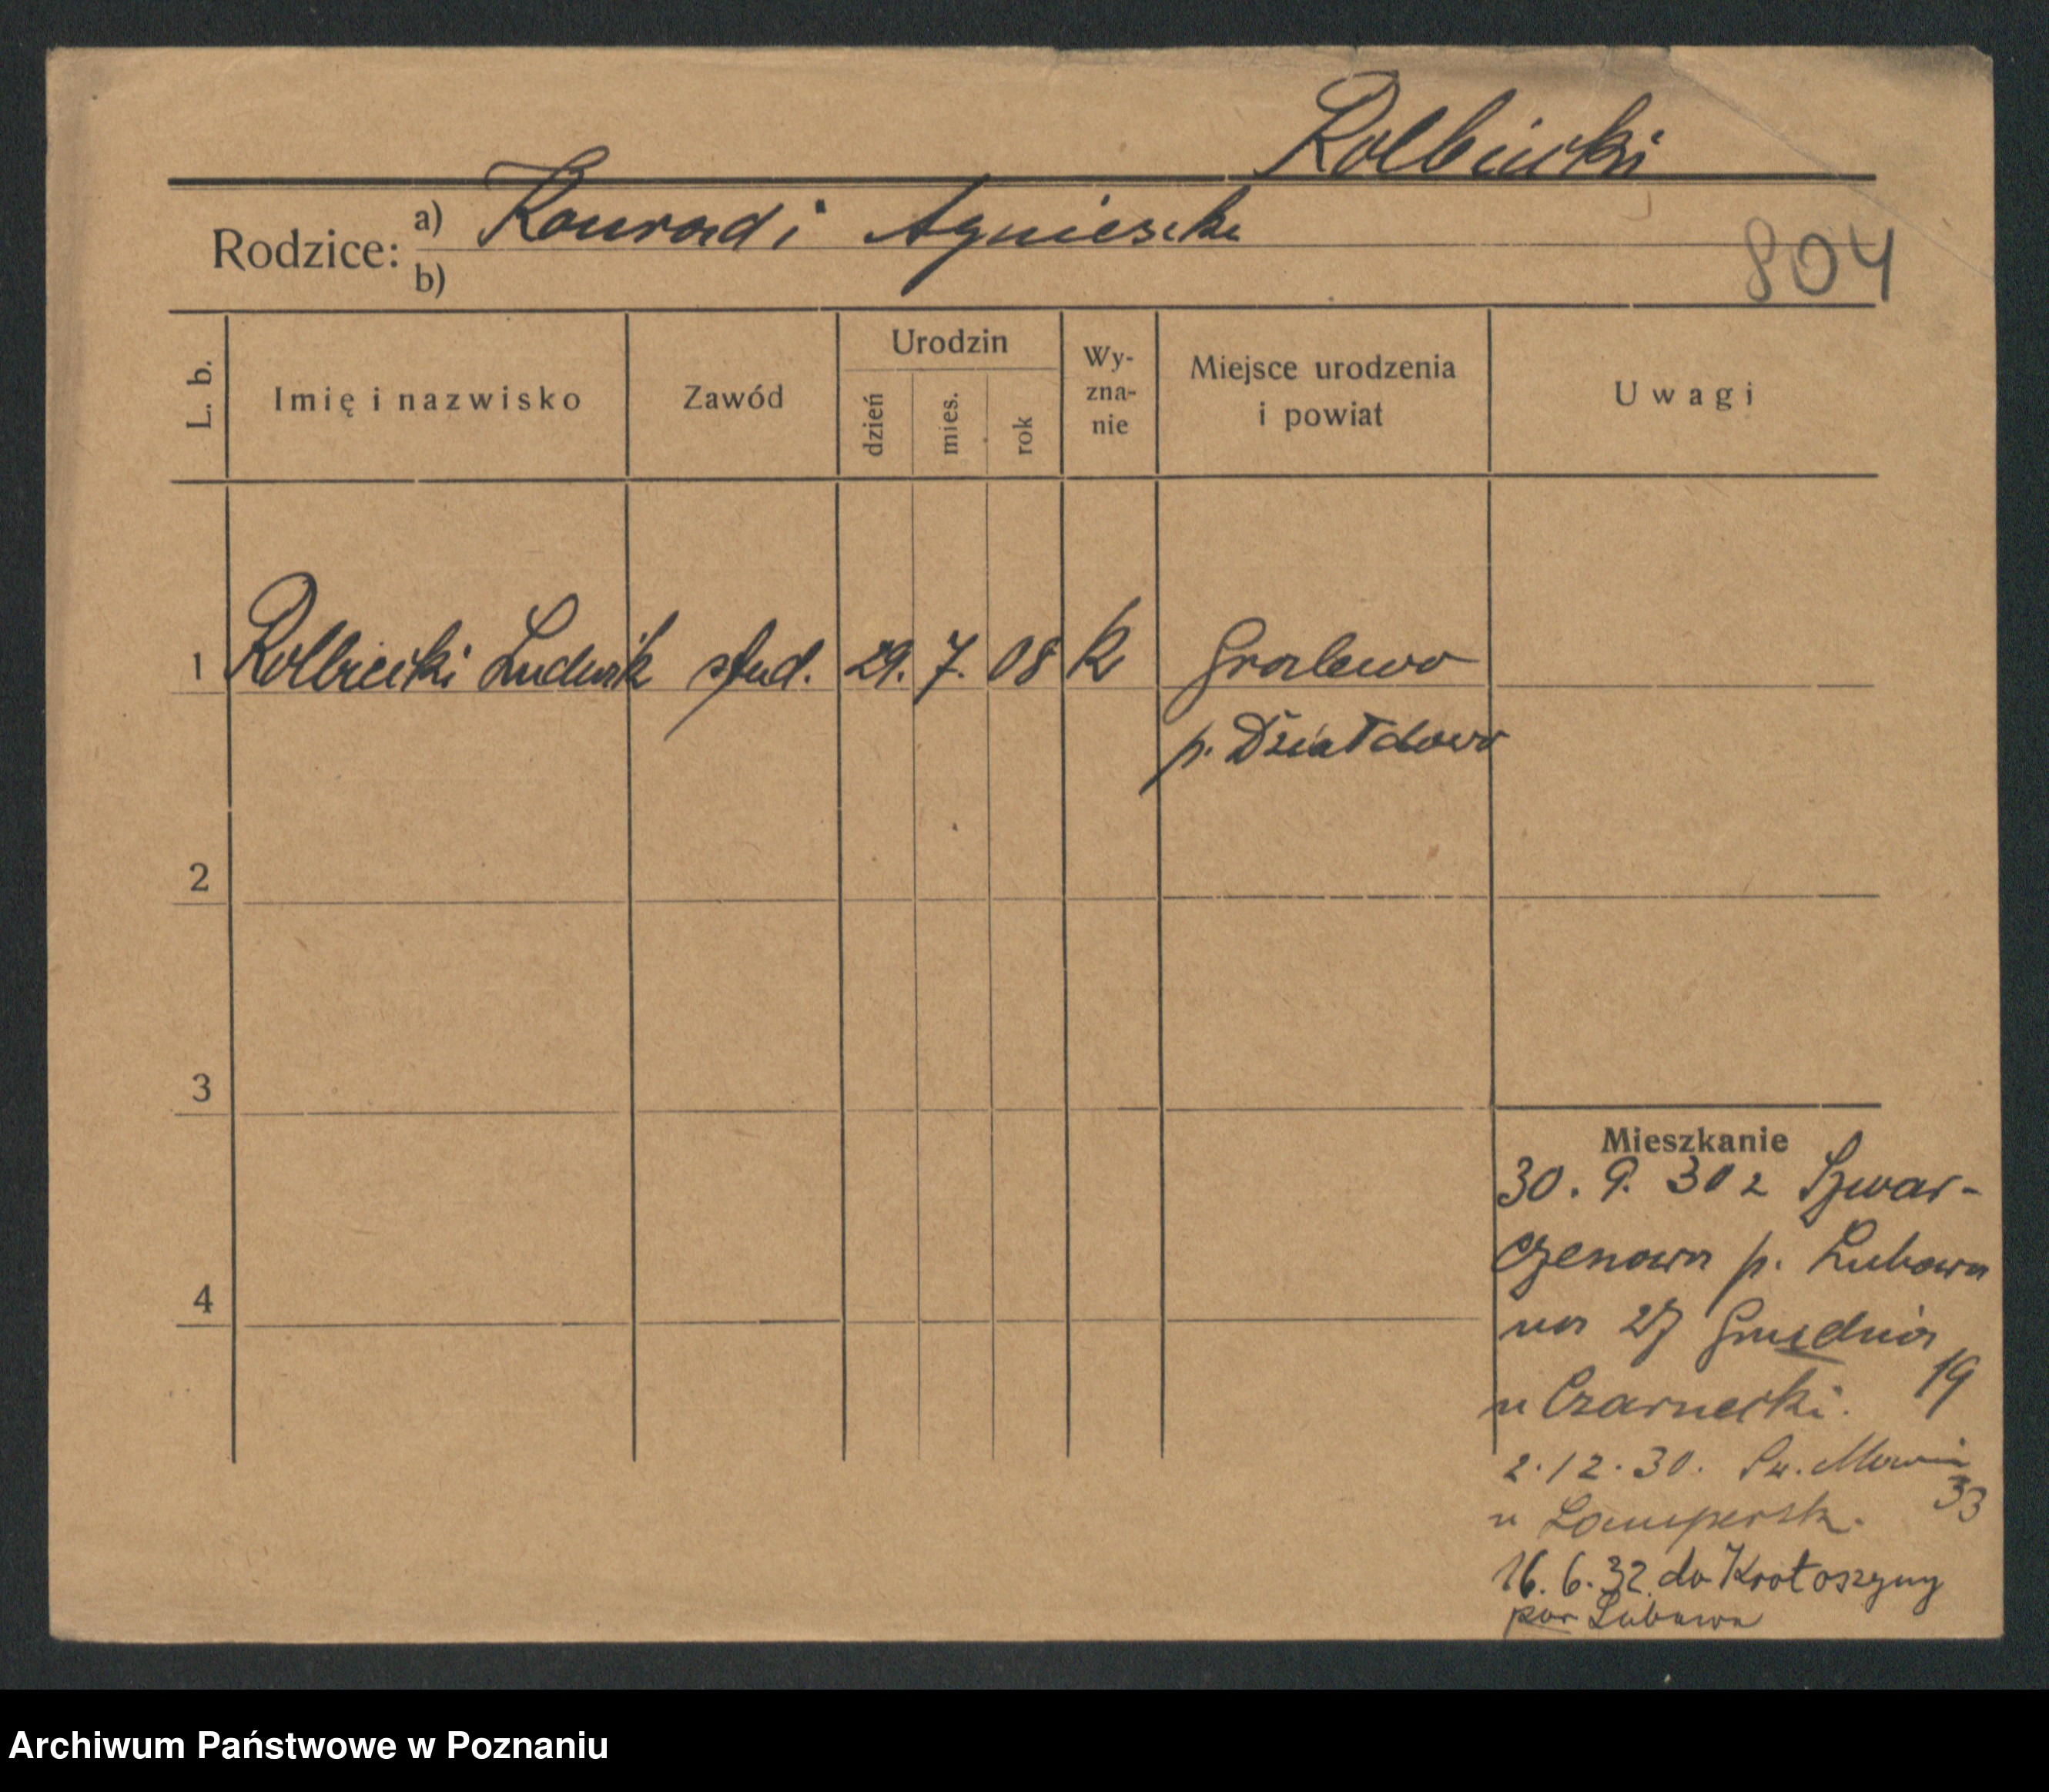 Rolbiecki
Rodzice: a) Konrad i Agnieszka
b)
804
L. b. Imię i nazwisko Zawód Urodzin dzień mies. rok Wy-zna-nie Miejsce urodzenia i powiat Uwagi
1 Rolbiecki Ludwik stud. 29. 7. 08 k Gralewo
p. Działdowo
2
3
Mieszkanie
30. 9. 30 z Szwar-
4
czenowa p. Lubawa
na 27 Grudnia
19
u Czarnecki.
2.12.30. Św. Marcin
33
u
16.6.32. do Krotoszyny
pow Lubawa
Archiwum Państwowe w Poznaniu